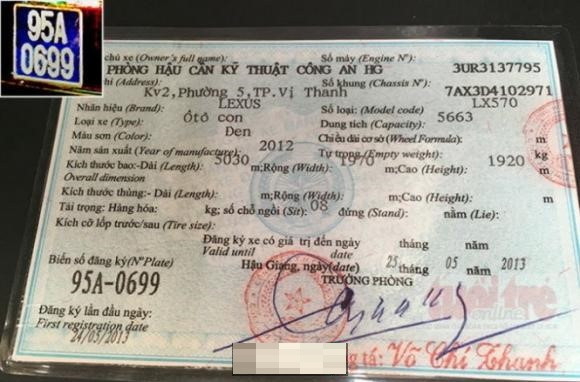 95A
0699
chủ xe (Owner's full name):
Số máy (Engine Nº):
PHÒNG HẬU CẦN KỸ THUẬT CÔNG AN HG
3UR3137795
chỉ (Address):
Số khung (Chassis Nº):
Kv2, Phường 5, TP.Vị Thanh
7AX3D4102971
Nhãn hiệu (Brand): LEXUS
Số loại: (Model code) LX570
Loại xe (Type): Ôtô con
Dung tích (Capacity): 5663
Màu sơn (Color): Đen
Chiều dài cơ sở (Wheel Formula): m
Năm sản xuất (Year of manufacture): 2012
Tự trọng (Empty weight): kg
Kích thước bao:-Dài (Length): 5030 m;Rộng (Width): 1970 m;Cao (Height): 1920 m
Overall dimension
Kích thước thùng: - Dài (Length): m;Rộng (Width): m;Cao (Height): m
Tải trọng: Hàng hóa: kg; số chỗ ngồi (Sit): 08 đứng (Stand): nằm (Lie):
Kích cỡ lốp trước/sau (Tire size):
Đăng ký xe có giá trị đến ngày tháng năm
Valid until date
Biển số đăng ký(Nº Plate)
Hậu Giang, ngày(date) 25 tháng 05 năm 2013
95A-0699
TRƯỞNG PHÒNG
tuổi trẻ
online
Đăng ký lần đầu ngày:
First registration date
24/05/2013
tá: Võ Chí Thanh